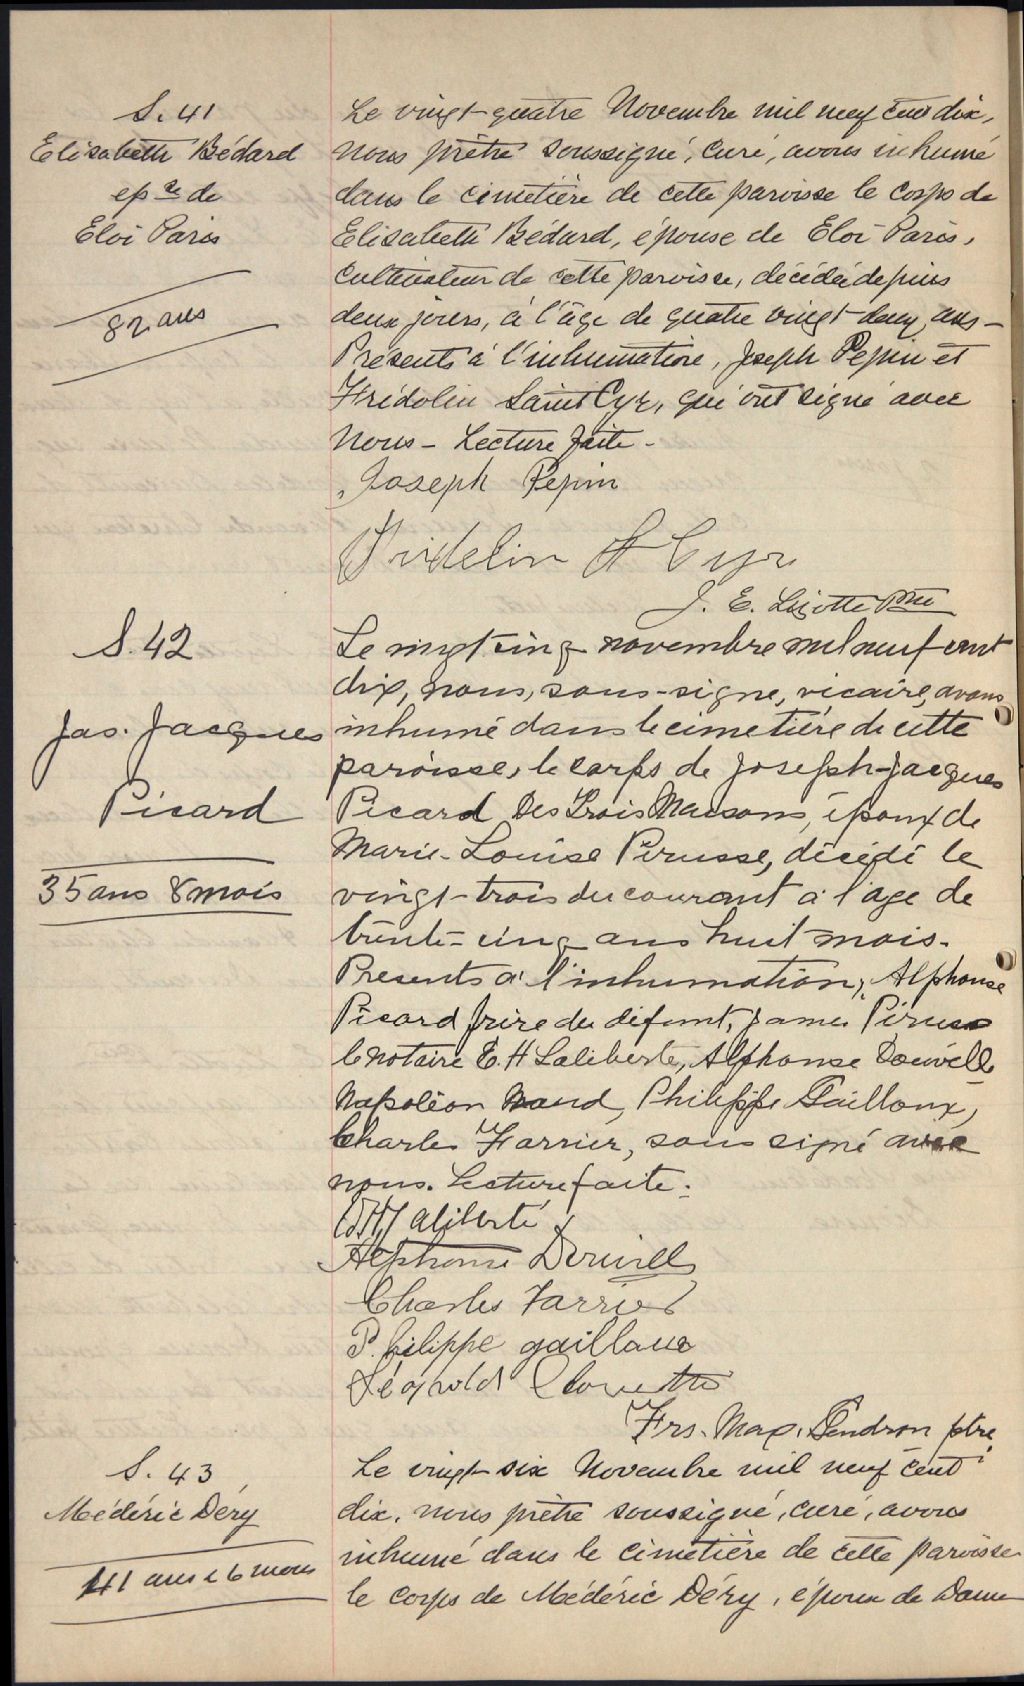 S. 41
Elisabeth Bédard
epse de
Eloi Paris
82 ans
Le vingt-quatre Novembre mil neuf cent dix,
nous prêtre soussigné, curé, avons inhumé
dans le cimetière de cette paroisse le corps de
Elisabeth Bédard, épouse de Eloi Paris,
cultivateur de cette paroisse, décédée depuis
deux jours, à l'âge de quatre vingt-deux ans -
Présents à l'inhumation, Joseph Pepin et
Fridolin Saint Cyr, qui ont signé avec
nous - Lecture faite -
Joseph Pepin
Fridelin St Cyr
J. E. Lizotte Ptre
S. 42
Jos. Jacques
Picard
35 ans 8 mois
Le vingt cinq novembre mil neuf cent
dix, nous, sous-signé, vicaire, avons
inhumé dans le cimetière de cette
paroisse, le corps de Joseph-Jacques
Picard Des Trois Maisons, époux de
Marie-Louise Pirusse, décédé le
vingt-trois du courant à l'age de
trente-cinq ans huit mois.
Presents à l'inhumation, Alphonse
Picard frère du défunt, James
le notaire E. H Laliberté, Alphonse
Napoléon Philippe Gailloux,
Charles Farrier, sous signé avec
nous. Lecture faite.
EH Laliberté
Alphonse
Charles Farrier
Philippe gailloux
Léopold
Frs. Max. Gendron ptre
S. 43
Médéric Déry
41 ans & 6 mois
Le vingt-six Novembre mil neuf cent
dix, nous prêtre soussigné, curé, avons
inhumé dans le cimetière de cette paroisse
le corps de Médéric Déry, époux de Dame